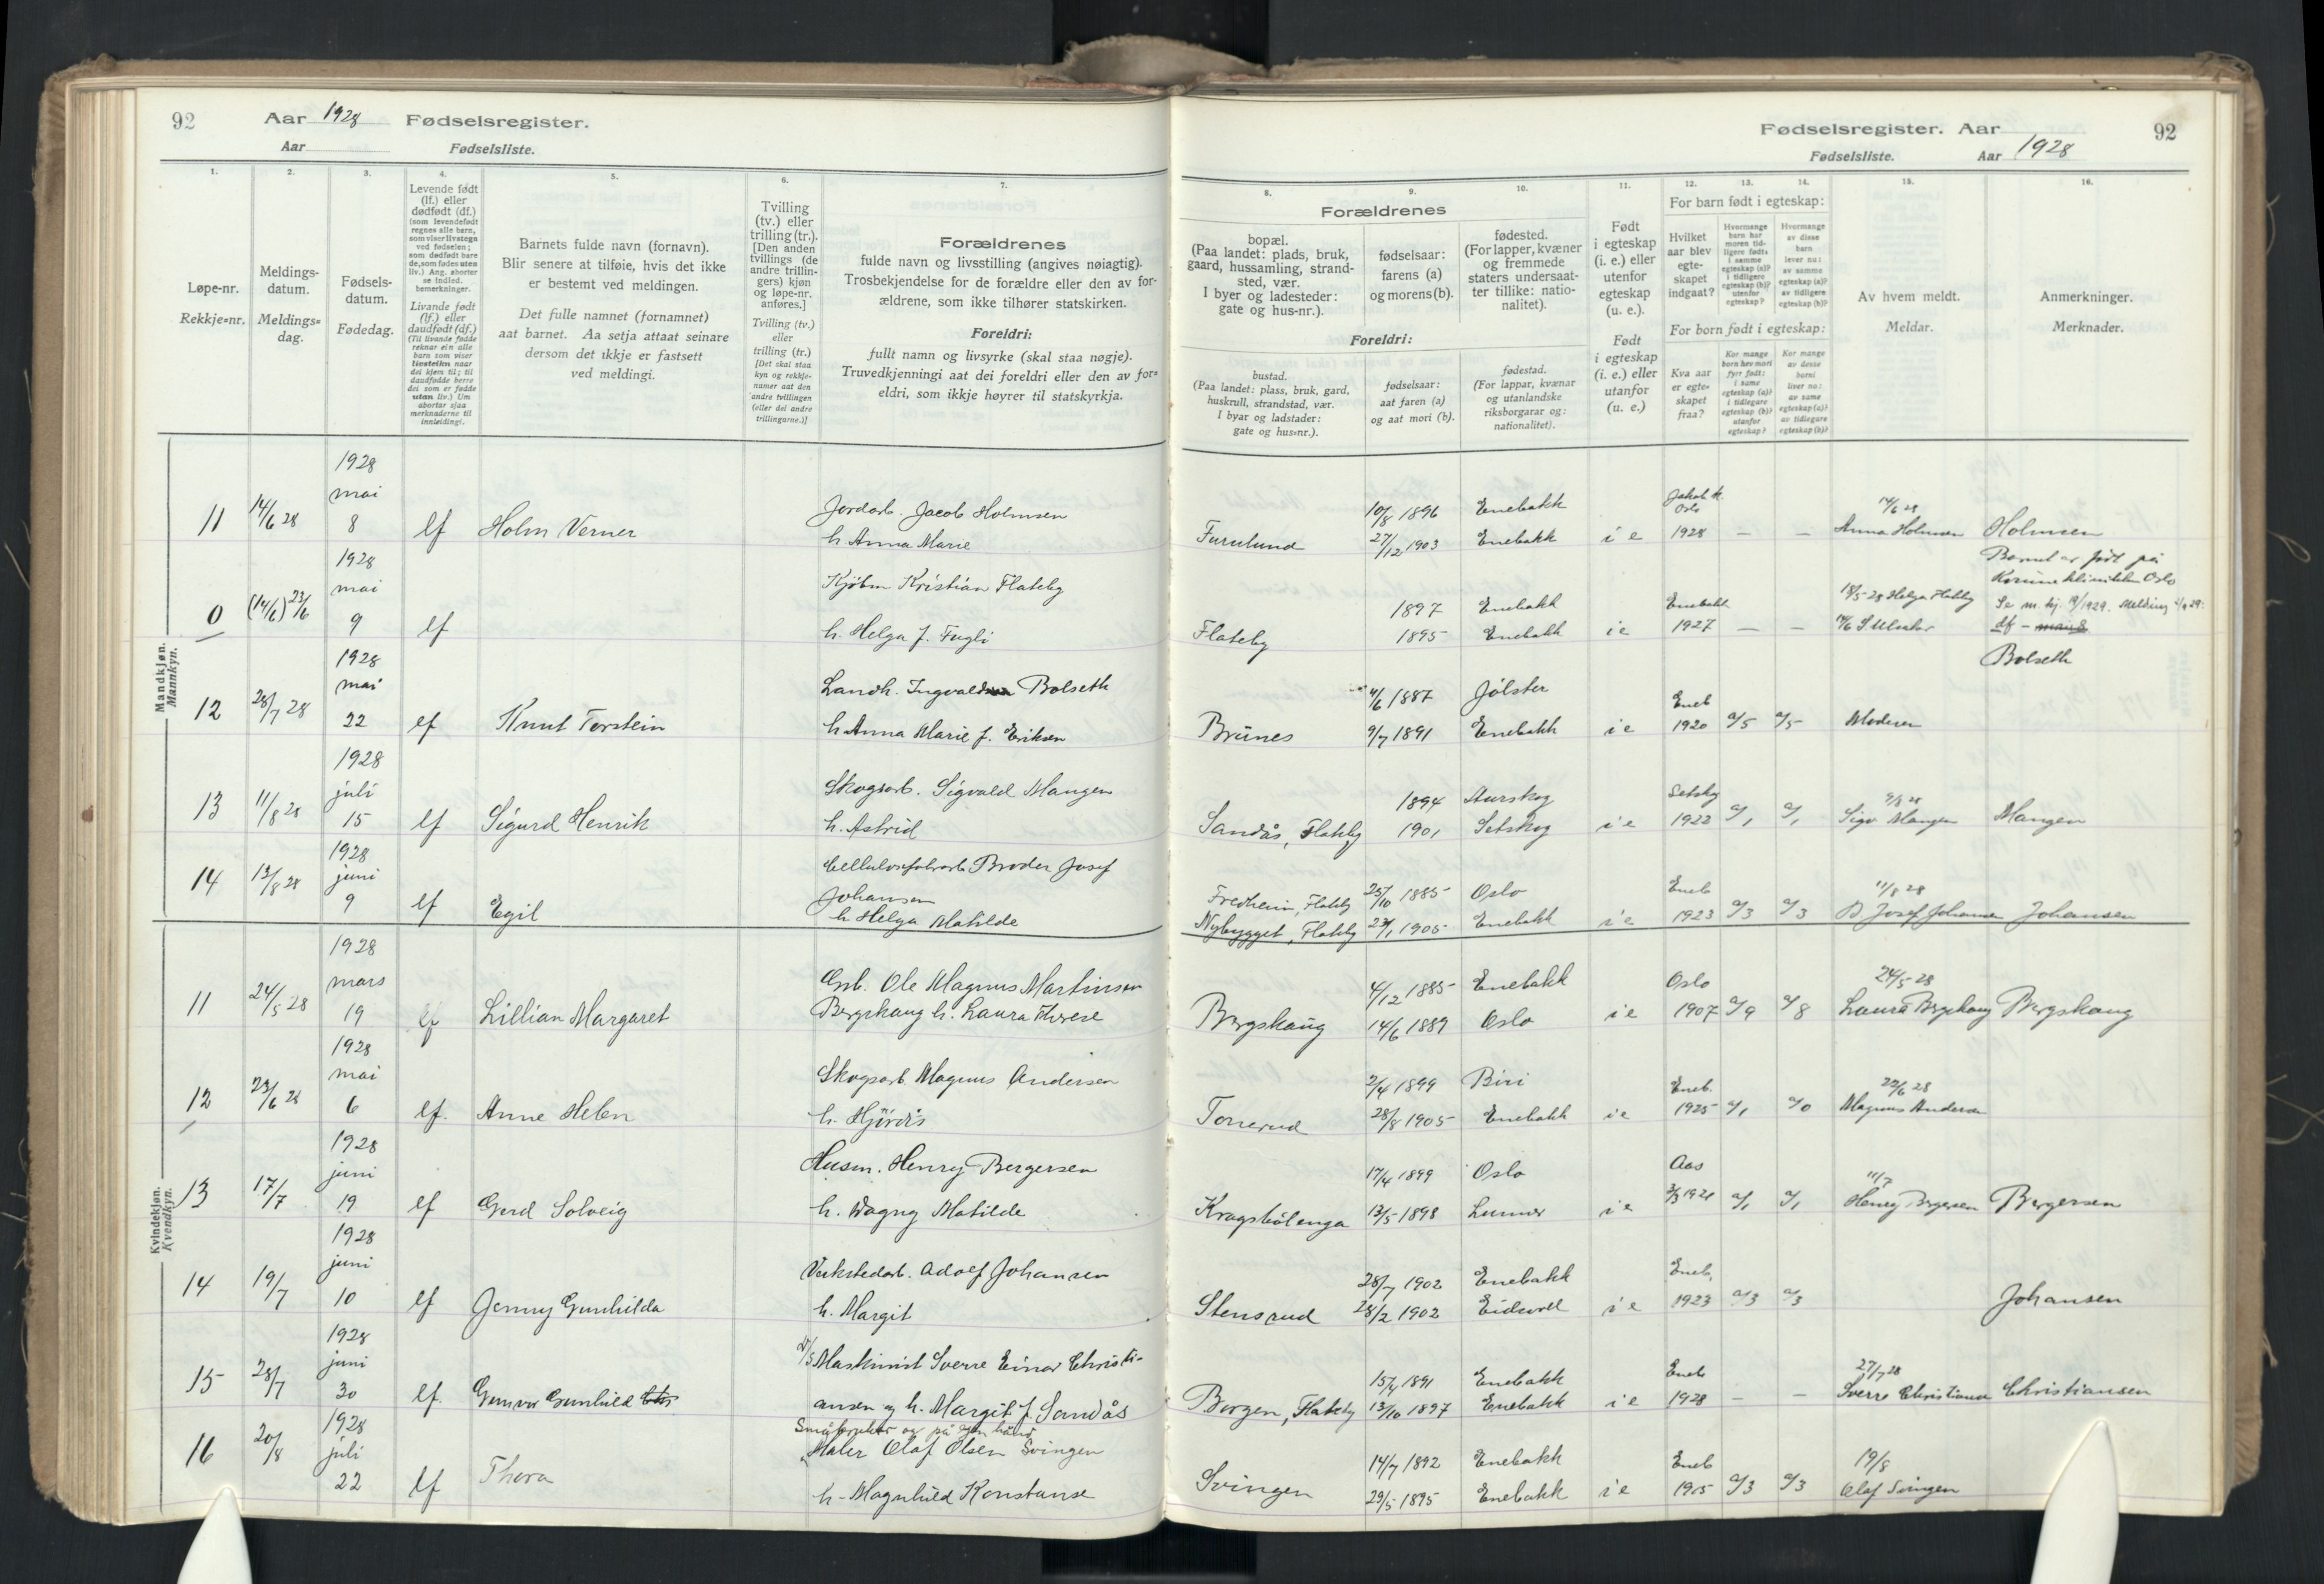 92
Aar 1928 Fødselsregister.
Aar Fødselsliste.
Fødselsregister. Aar
92
Fødselsliste. Aar 1928
1.
Løpe-nr.
Rekkje=nr.
2.
Meldings-
datum.
Meldings=
dag.
3.
Fødsels-
datum.
Fødedag.
4.
Levende født
(lf.) eller
dødfødt (df.)
(som levendefødt
regnes alle barn,
som viser livstegn
ved fødselen;
som dødfødt bare
de, som fødes uten
liv.) Ang. aborter
se indled.
bemerkninger.
Livande født
(lf.) eller
daudfødt (df.)
(Til livande fødde
reknar ein alle
barn som viser
livsteikn naar
dei kjem til; til
daudfødde berre
dei som er fødde
utan liv.) Um
abortar sjaa
merknaderne til
innleidingi.
5.
Barnets fulde navn (fornavn).
Blir senere at tilføie, hvis det ikke
er bestemt ved meldingen.
Det fulle namnet (fornamnet)
aat barnet. Aa setja attaat seinare
dersom det ikkje er fastsett
ved meldingi.
6.
Tvilling
(tv.) eller
trilling (tr.).
[Den anden
tvillings (de
andre trillin-
gers) kjøn
og løpe-nr.
anføres.]
Tvilling (tv.)
eller
trilling (tr.)
[Det skal staa
kyn og rekkje-
namer aat den
andre tvillingen
(eller dei andre
trillingarne.)]
7.
Forældrenes
fulde navn og livsstilling (angives nøiagtig).
Trosbekjendelse for de forældre eller den av for-
ældrene, som ikke tilhører statskirken.
Foreldri:
fullt namn og livsyrke (skal staa nøgje).
Truvedkjenningi aat dei foreldri eller den av for=
eldri, som ikkje høyrer til statskyrkja.
Forældrenes
8.
bopæl.
(Paa landet: plads, bruk,
gaard, hussamling, strand-
sted, vær.
I byer og ladesteder:
gate og hus-nr.).
9.
fødselsaar:
farens (a)
og morens (b).
10.
fødested.
(For lapper, kvæner
og fremmede
staters undersaat-
ter tillike: natio-
nalitet).
Foreldri:
bustad.
(Paa landet: plass, bruk, gard,
huskrull, strandstad, vær.
I byar og ladstader:
gate og hus=nr.).
fødselsaar:
aat faren (a)
og aat mori (b).
fødestad.
(For lappar, kvænar
og utanlandske
riksborgarar og:
nationalitet).
11.
Født
i egteskap
(i. e.) eller
utenfor
egteskap
(u. e.).
Født
i egteskap
(i. e.) eller
utanfor
(u. e.)
For barn født i egteskap:
12.
Hvilket
aar blev
egte-
skapet
indgaat?
13.
Hvormange
barn har
moren tid-
ligere født:
i samme
egteskap (a)?
i tidligere
egteskap (b)?
utenfor
egteskap?
14.
Hvormange
av disse
barn
lever nu:
av samme
egteskap (a)?
av tidligere
egteskap (b)?
For born født i egteskap:
Kva aar
er egte=
skapet
fraa?
Kor mange
born hev mori
fyrr født:
i same
egteskap (a)?
i tidlegare
egteskap (b)?
utanfor
egteskap?
Kor mange
av desse
borni
liver no:
av same
egteskap (a)?
av tidlegare
egteskap (b)?
15.
Av hvem meldt.
Meldar.
16.
Anmerkninger.
Merknader.
Mandkjøn.
Mannkyn.
11 14/6 28 1928 mai 8 lf Holm Verner
Jordarb. Jacob Holmsen
h. Anna Marie
Furulund 10/8 1896 Enebakk
27/12 1903 Enebakk i e Oslo 1928 — — 14/6 28 Anna Holmsen Holmsen
0 (14/6) 23/6 1928 mai 9 lf
Kjøbm Kristian Flateby
h. Helga f. Fugli
Flateby 1897 Enebakk
1895 Enebakk i e Enebakk 1927 — — Helga Flateby
Barnet er født på
Oslo
df
12 28/7 28 1928 mai 22 lf Knut Torstein
Landh. Ingvald Bolseth
h. Anna Marie f. Eriksen
Brünes 4/6 1887 Jölster
9/7 1891 Enebakk i e Eneb 1920 a/5 a/5 Moderen Bolseth
13 11/8 28 1928 juli 15 lf Sigurd Henrik
Skogsarb. Sigvald Mangen
h. Astrid
Sandås, Flateby 1894 Aurskog
1901 Setskog i e Setskog 1922 a/1 a/1 9/8 28 Sigv Mangen Mangen
14 13/8 28 1928 juni 9 lf Egil
Cellulosefabrarb Broder Josef
Johansen
h. Helga Matilde
Fredheim, Flateby 25/10 1885 Oslo
Nybygget, Flateby 1905 Enebakk i e Eneb 1923 a/3 a/3 11/8 28 B Josef Johansen Johansen
Kvindekjøn.
Kvendkyn.
11 24/5 28 1928 mars 19 lf Lillian Margaret
Grb. Ole Magnus Martinsen
Bergskaug h. Laura Therese
Bergskaug 4/12 1885 Enebakk
14/6 1889 Oslo i e Oslo 1907 a/9 a/8 24/5 28 Laura Bergskaug Bergskaug
12 23/6 28 1928 mai 6 lf. Anne Helen
Skogsarb. Magnus Andersen
h. Hjördis
Tonerud 2/4 1899 Biri
28/8 1905 Enebakk i e Eneb. 1925 a/1 a/0 22/6 28 Magnus Andersen
13 17/7 1928 juni 19 lf Gerd Solveig
Husm. Henry Bergersen
h. Dagny Matilde
Kragsbölenga 17/4 1899 Oslo
13/5 1898 Lunner i e Aas 1921 a/1 a/1 11/7 Henry Bergersen Bergersen
14 19/7 1928 juni 10 lf Jenny Gunhilda
Verkstedarb. Adolf Johansen
h. Margit
Stensrud 28/7 1902 Enebakk
28/2 1902 Eidsvoll i e Eneb. 1923 a/3 a/3 Johansen
15 28/7 1928 juni 30 lf. Gunvor Gunhild
Maskinist Sverre Einar Christi-
ansen og h. Margit f. Sandås
Borgen, Flateby 15/4 1891 Enebakk
13/10 1897 Enebakk i e Eneb 1928 — — 27/7 28 Sverre Christiansen Christiansen
16 20/8 1928 juli 22 lf Thora
Småbruker og på egen hånd
Maler Olaf Olsen Svingen
h. Magnhild Konstanse
Svingen 14/7 1892 Enebakk
29/5 1895 Enebakk i e Eneb 1915 a/3 a/3 19/8 Olaf Svingen